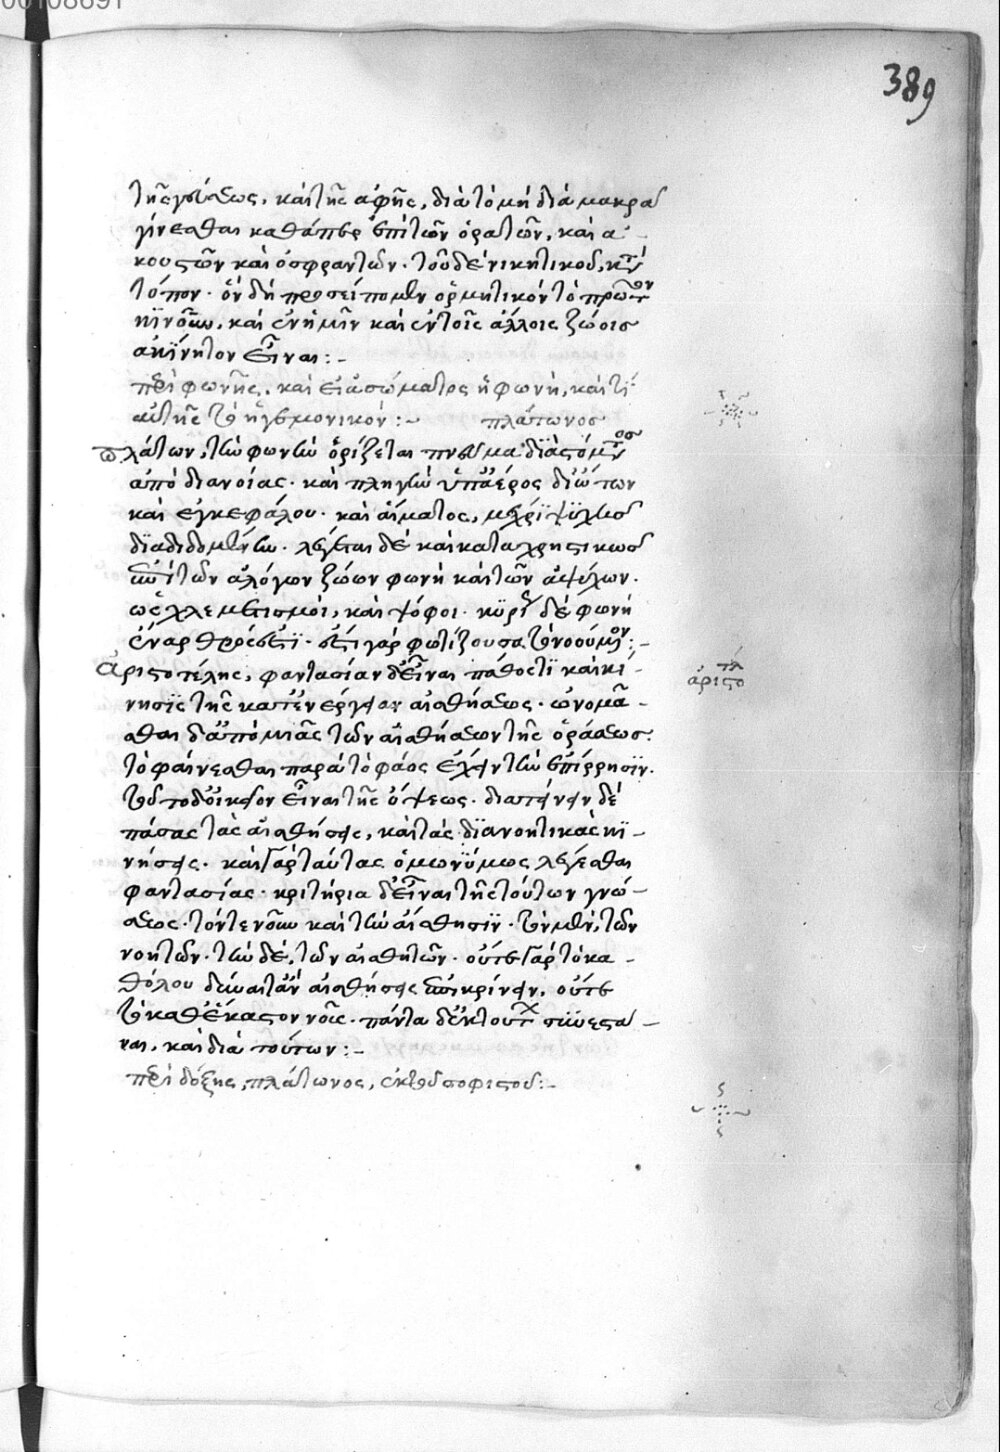 00108691
389
τῆς γεύσεως, καὶ τῆς ἁφῆς, διὰ τὸ μὴ διὰ μακροῦ
γίνεσθαι καθάπερ ἐπὶ τῶν ὁρατῶν, καὶ ἀ-
κουστῶν καὶ ὀσφραντῶν. τοῦ δὲ νικητικοῦ, κατὰ
τόπον. ὃν δὴ προσείπομεν ὁρμητικὸν τὸ πρῶτον
κϊνοῦν, καὶ ἐν ἡμῖν καὶ ἐν τοῖς ἄλλοις ζώοις
ἀκίνητον εἶναι:-
περὶ φωνῆς, καὶ εἰ ἀσώματος ἡ φωνὴ, καὶ τί
αὐτῆς τὸ ἡγεμονικόν:~ πλάτωνος
πλάτων, τὴν φωνὴν ὁρίζεται πνεῦμα διὰ στόματος
ἀπὸ διανοίας. καὶ πληγὴν ὑπὸ ἀέρος δι' ὤτων
καὶ ἐγκεφάλου. καὶ αἵματος, μέχρϊ ψϋχῆς
δϊαδιδομένην. λέγεται δὲ καὶ καταχρηστικῶς
ἐπὶ τῶν ἀλόγων ζώων φωνὴ καὶ τῶν ἀψύχων.
ὡς χλεμετισμοὶ, καὶ ψόφοι. κυρίως δὲ φωνὴ
ἔναρθρός ἐστϊ. ἐστὶ γὰρ φωτίζουσα τὸ νοούμενον:-
Ἀριστοτέλης, φαντασίαν δ' εἶναι πάθος τϊ καὶ κί-
νησϊς τῆς κατ' ἐνέργειαν αἰσθήσεως. ὠνομᾶ-
σθαι δ' ἀπὸ μιᾶς τῶν αἰσθήσεων τῆς ὁράσεως.
τὸ φαίνεσθαι παρὰ τὸ φάος ἔχειν τὴν ἐπίρρησϊν.
τοῦτο δ' οἰκεῖον εἶναι τῆς ὄψεως. διατείνειν δὲ
πάσας τὰς αἰσθήσεις, καὶ τὰς δϊανοητικὰς κϊ-
νήσεις. καὶ γὰρ ταύτας ὁμωνϋμως λέγεσθαι
φαντασίας. κριτήρια δ' εἶναι τῆς τούτων γνώ-
σεως. τόν τε νοῦν καὶ τὴν αἴσθησϊν. τὸν μὲν, τῶν
νοητῶν. τὴν δέ, τῶν αἰσθητῶν. οὔτε γὰρ τὸ κα-
θόλου δύναιτ' ἂν αἴσθησις ἐπικρίνειν, οὔτε
τὸ καθ' ἕκαστον νοῦς. πάντα δ' ἐκ τούτων συνεστά-
ναι, καὶ διὰ τούτων:-
περὶ δόξης, πλάτωνος, ἐκ τοῦ σοφιστοῦ:-
πλ
ἀριστο